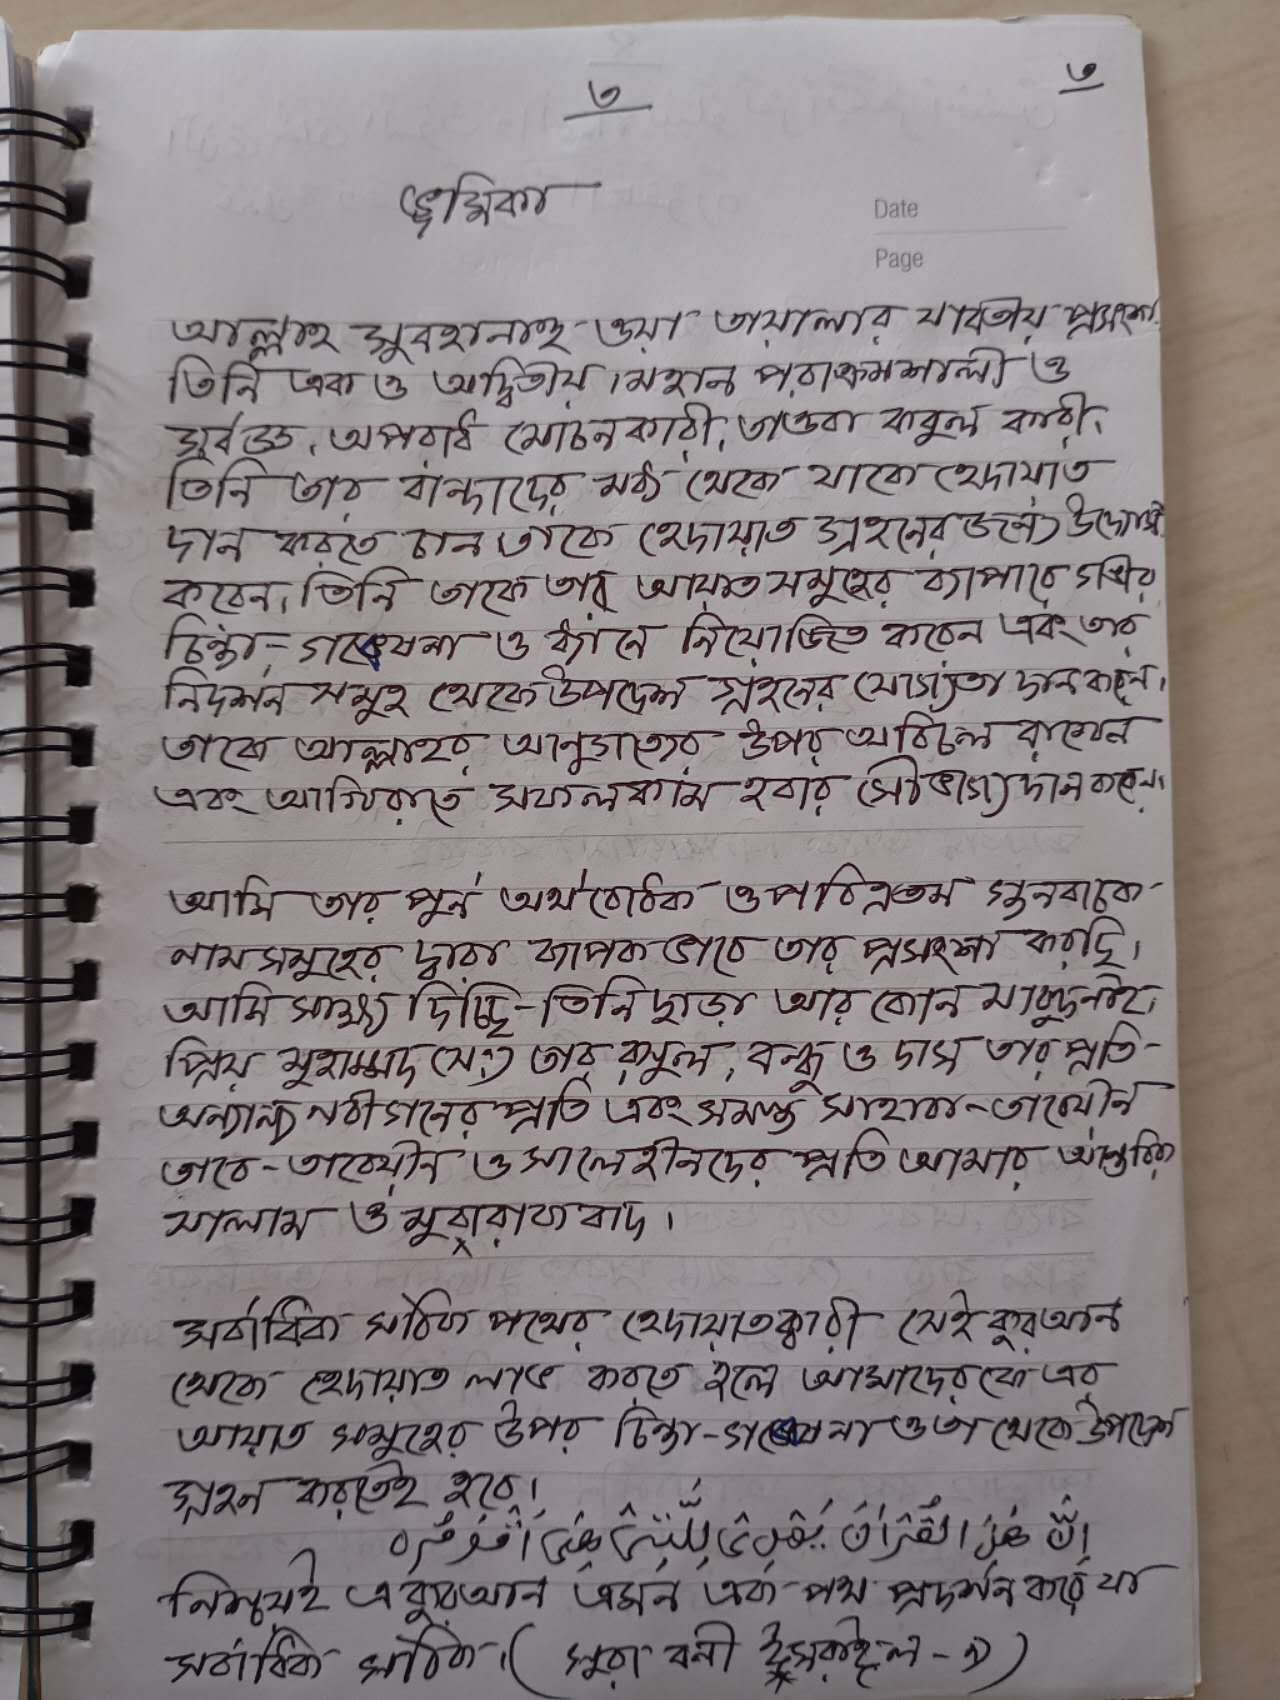 ৩
৩
ভূমিকা
Date
Page
আল্লাহ সুবহানাহু ওয়া তায়ালার যাবতীয় প্রসংশা
তিনি এক ও অদ্বিতীয়। মহান পরাক্রমশালী ও
সর্বজ্ঞ, অপরাধ মোচনকারী, তাওবা কবুল কারী,
তিনি তার বান্দাদের মধ্য থেকে যাকে হেদায়াত
দান করতে চান তাকে হেদায়াত গ্রহনের জন্যে
করেন, তিনি তাকে তার আয়াত সমুহের ব্যাপারে গভীর
চিন্তা-গবেষনা ও ধ্যানে নিয়োজিত করেন এবং তার
নিদর্শন সমুহ থেকে উপদেশ গ্রহনের যোগ্যতা দান করেন।
তাকে আল্লাহর আনুগত্যের উপর অবিচল রাখেন
এবং আখিরাতে সফলকাম হবার সৌভাগ্য দান করেন।
আমি তার পুর্ন অর্থবোধক ও পবিত্রতম গুনবাচক
নাম সমুহের দ্বারা ব্যপক ভাবে তার প্রসংশা করছি।
আমি সাক্ষ্য দিচ্ছি-তিনি ছাড়া আর কোন মাবুদ নাই।
প্রিয় মুহাম্মাদ (সেঃ) তার রসুল, বন্ধু ও দাস তার প্রতি-
অন্যান্য নবীগনের প্রতি এবং সমস্ত সাহাবা-তাবেয়ীন
তাবে-তাবেয়ীন ও সালেহীনদের প্রতি আমার আন্তরিক
সালাম ও মুবারাকবাদ।
সর্বাধিক সঠিক পথের হেদায়াতকারী সেই কুরআন
থেকে হেদায়াত লাভ করতে হলে আমাদেরকে এর
আয়াত সমুহের উপর চিন্তা-গবেষনা ও তা থেকে উপদেশ
গ্রহন করতেই হবে।
নিশ্চয়ই এ কুরআন এমন এক পথ প্রদর্শন করে যা
সর্বাধিক সঠিক। (সুরা বনী ইসরাইল - ৯)